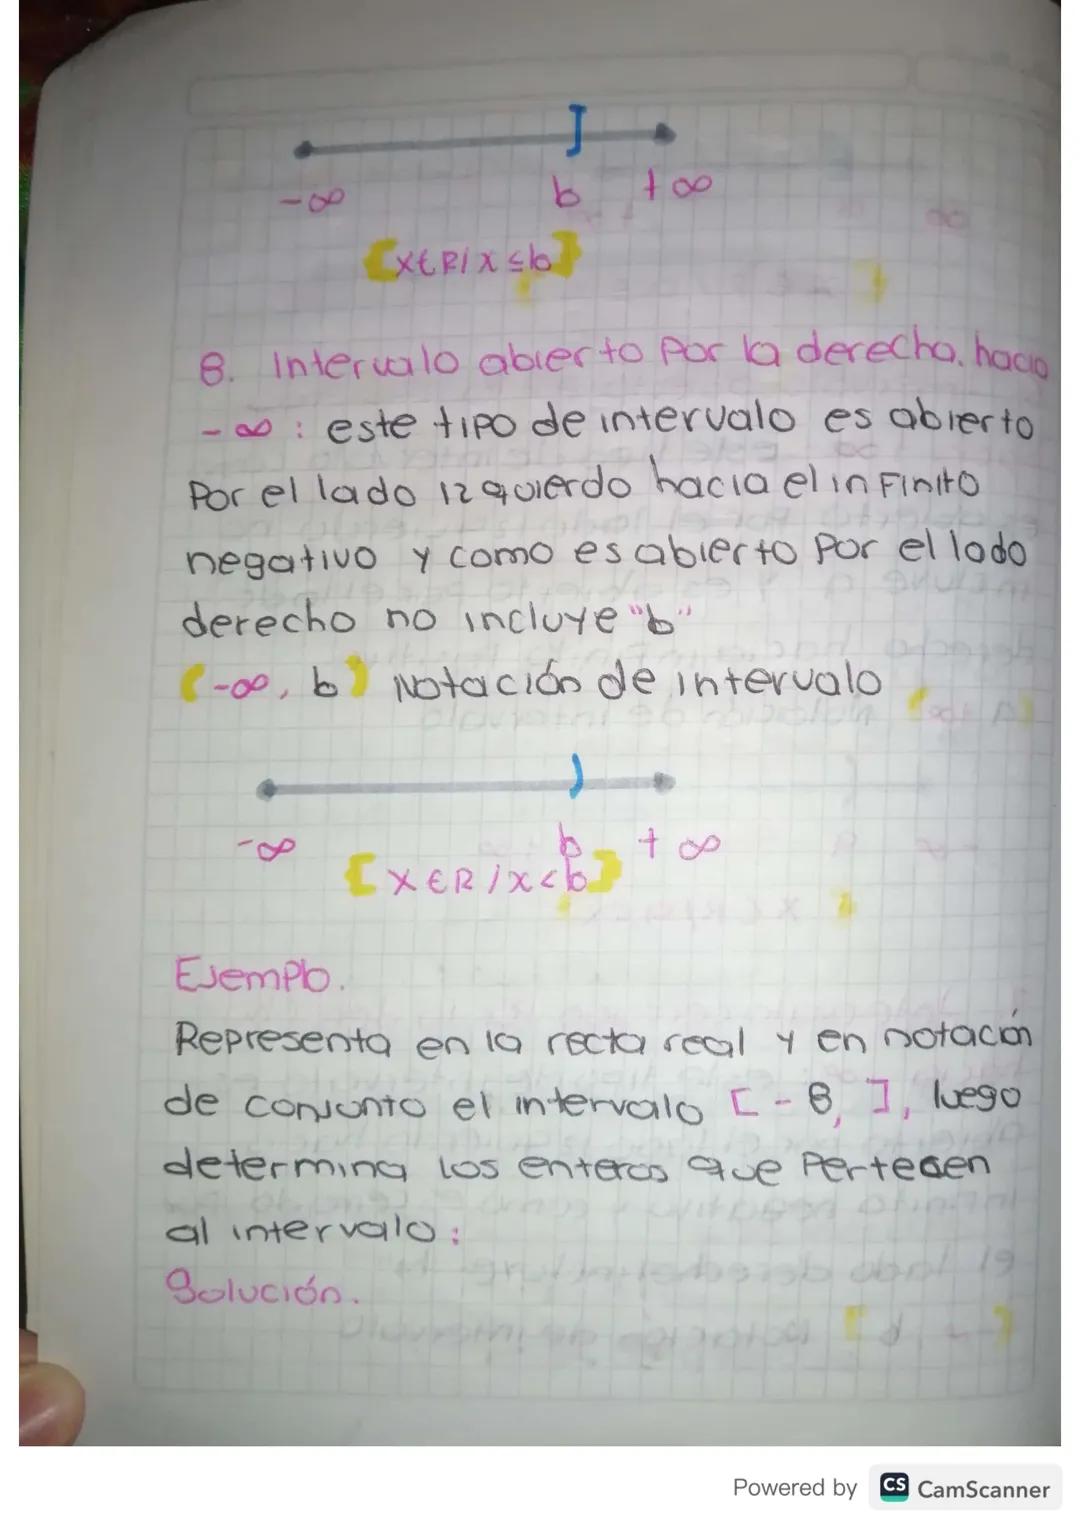 -∞ b +∞
{x∈R/x≤b}
8. Intervalo abierto por la derecha. hacia
-∞: este tipo de intervalo es abierto
Por el lado izquierdo hacia el infinito
negativo y como es abierto por el lado
derecho no incluye "b"
(-∞, b) Notación de intervalo
-∞ b +∞
{x∈R/x<b}
Ejemplo.
Representa en la recta real y en notación
de conjunto el intervalo [-8, ], luego
determina los enteros que pertecen
al intervalo:
Solución.
Powered by CS CamScanner